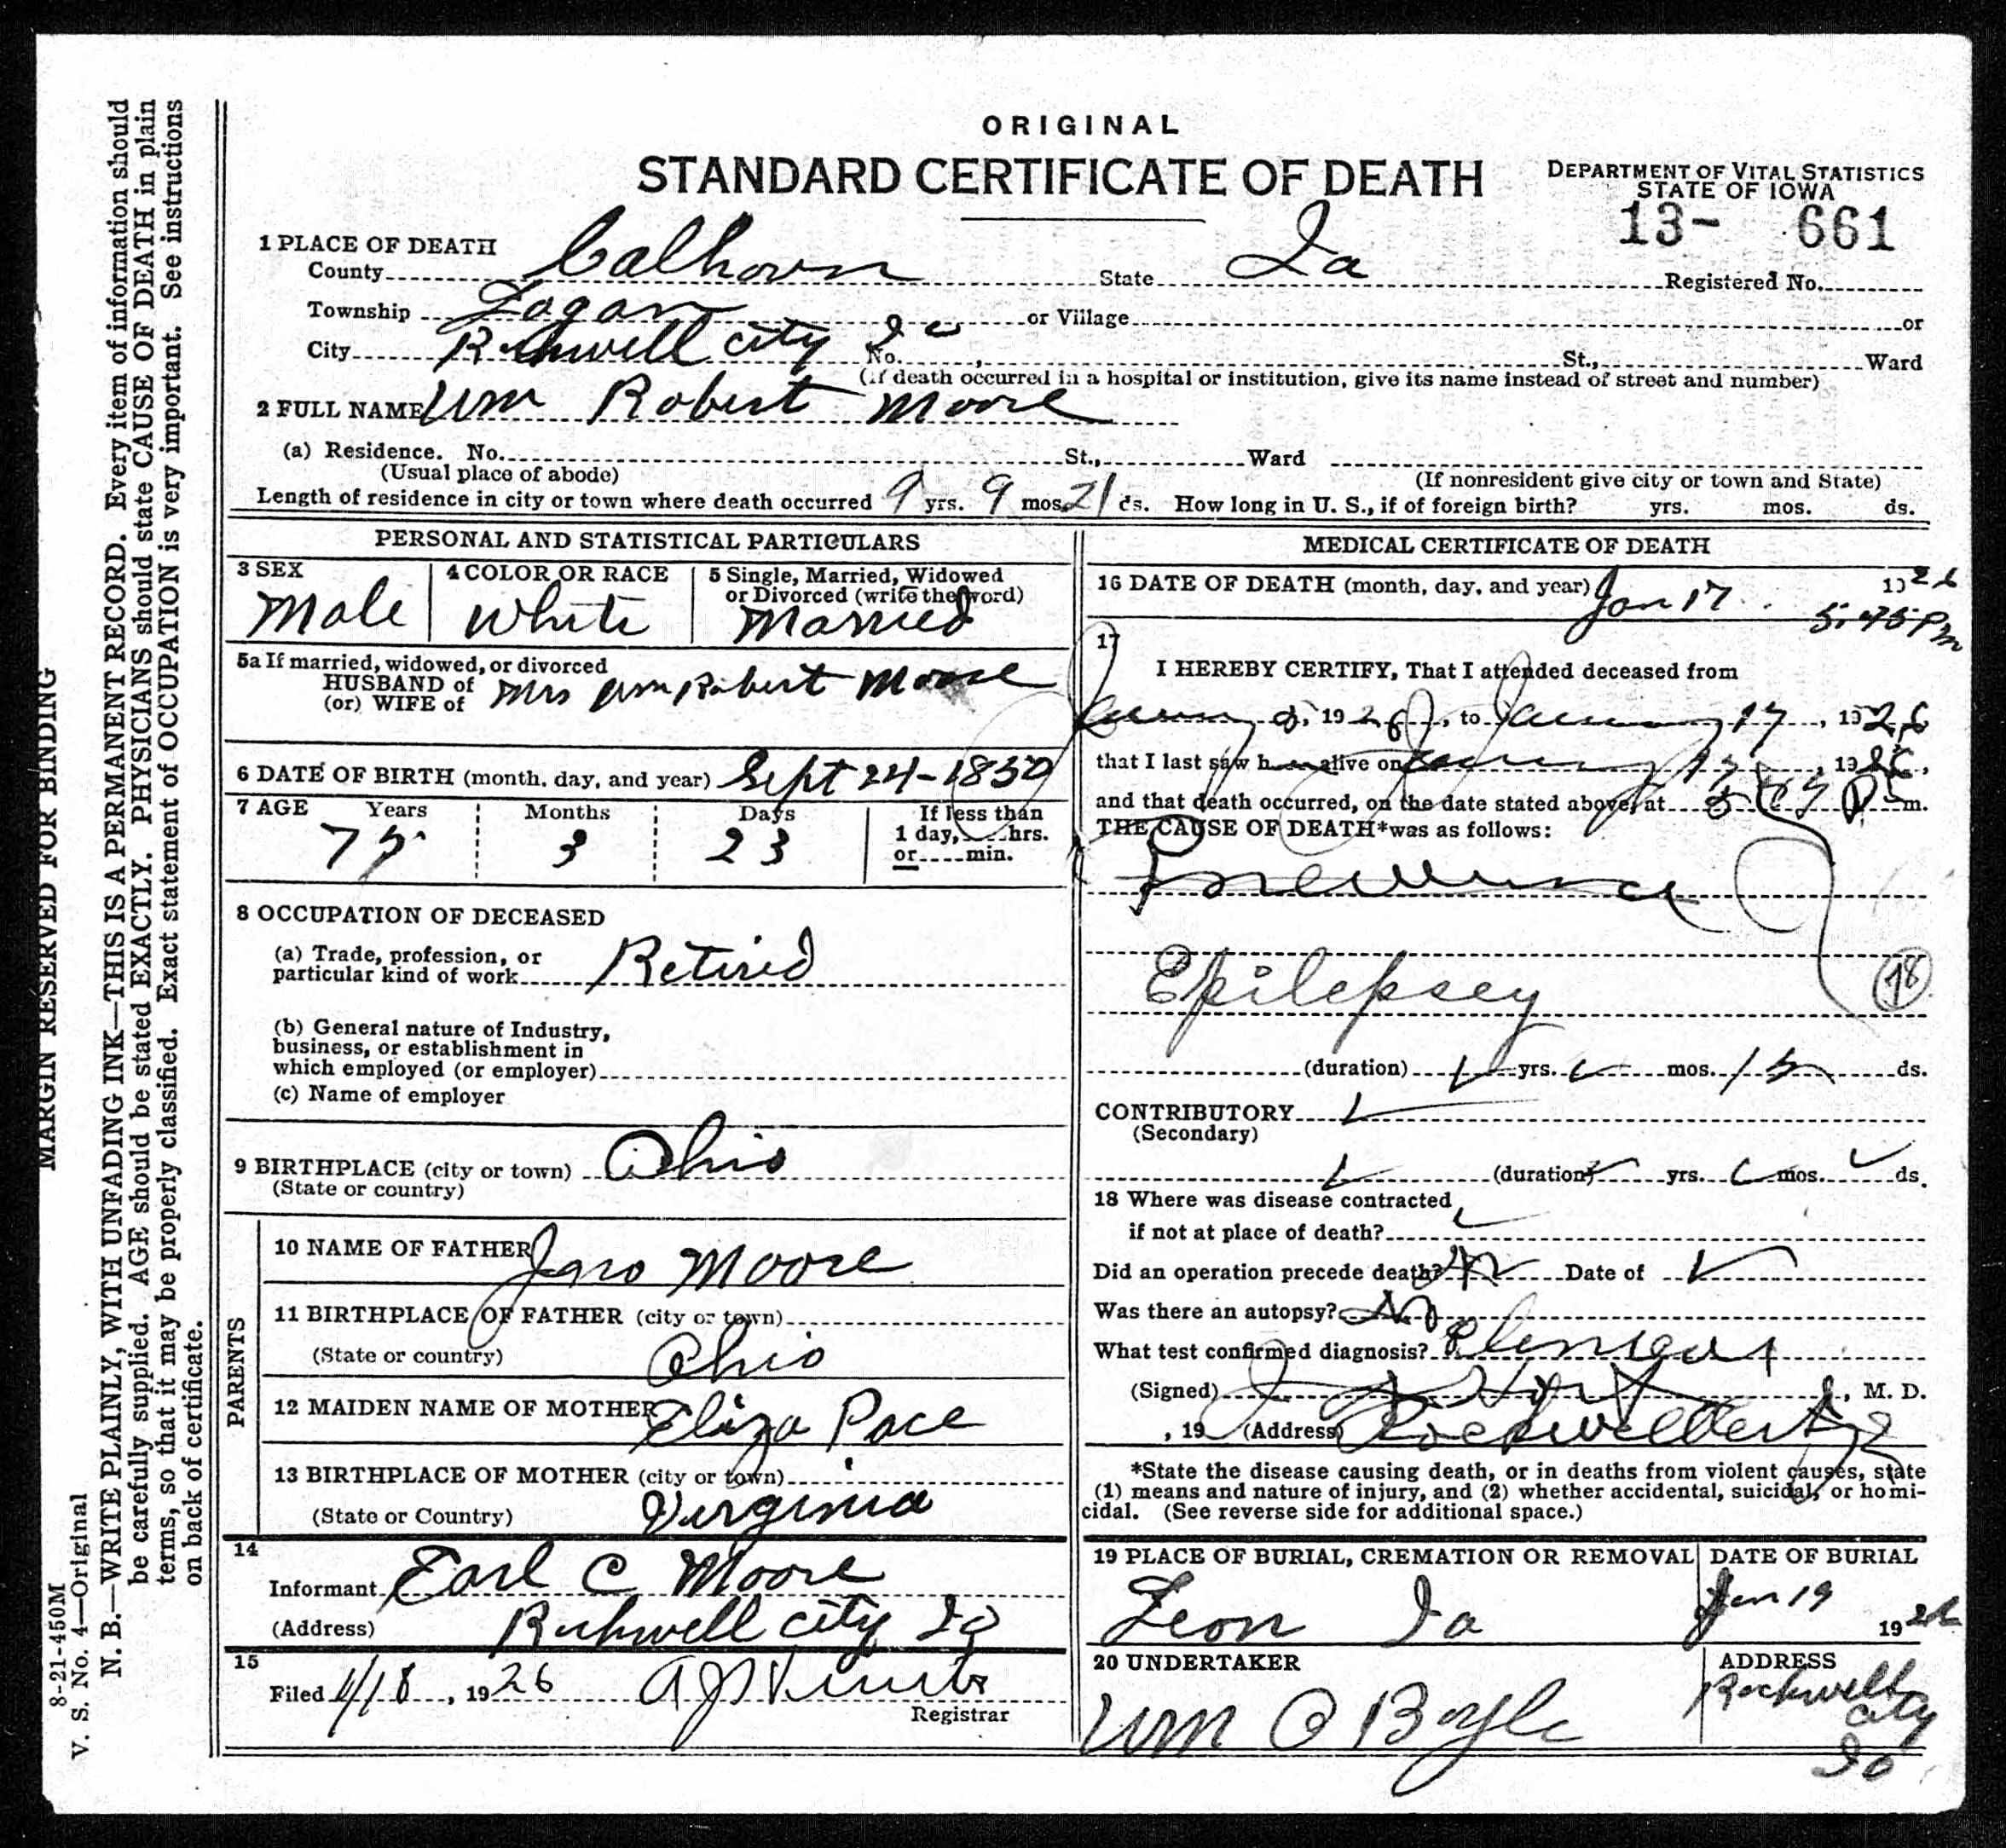 ORIGINAL
STANDARD CERTIFICATE OF DEATH
DEPARTMENT OF VITAL STATISTICS
STATE OF IOWA
13- 661
1 PLACE OF DEATH
County Calhoun State Ia Registered No.
Township Logan or Village or
City Rockwell city No. St., Ward
(If death occurred in a hospital or institution, give its name instead of street and number)
2 FULL NAME Wm Robert Moore
(a) Residence. No. St., Ward
(Usual place of abode) (If nonresident give city or town and State)
Length of residence in city or town where death occurred 9 yrs. 9 mos. 21 ds. How long in U. S., if of foreign birth? yrs. mos. ds.
PERSONAL AND STATISTICAL PARTICULARS
3 SEX 4 COLOR OR RACE 5 Single, Married, Widowed
or Divorced (write the word)
Male White Married
5a If married, widowed, or divorced
HUSBAND of Mrs Wm Robert Moore
(or) WIFE of
6 DATE OF BIRTH (month, day, and year) Sept 24-1850
7 AGE Years Months Days If less than
1 day, hrs.
75 3 23 or min.
8 OCCUPATION OF DECEASED
(a) Trade, profession, or
particular kind of work Retired
(b) General nature of Industry,
business, or establishment in
which employed (or employer)
(c) Name of employer
9 BIRTHPLACE (city or town) Ohio
(State or country)
PARENTS
10 NAME OF FATHER Moore
11 BIRTHPLACE OF FATHER (city or town)
(State or country) Ohio
12 MAIDEN NAME OF MOTHER Eliza Pace
13 BIRTHPLACE OF MOTHER (city or town)
(State or Country) Virginia
14
Informant Earl C Moore
(Address) Rockwell city Ia
15
Filed 1/18, 1926
Registrar
MEDICAL CERTIFICATE OF DEATH
16 DATE OF DEATH (month, day, and year) Jan 17 1926
5:45 Pm
17
I HEREBY CERTIFY, That I attended deceased from
January , 1926, to January 17, 1926
that I last saw h alive on January 17, 1926,
and that death occurred, on the date stated above, at m.
THE CAUSE OF DEATH*was as follows:
Pneumonia
Epilepsey
18
(duration) yrs. mos. 15 ds.
CONTRIBUTORY
(Secondary)
(duration) yrs. mos. ds.
18 Where was disease contracted
if not at place of death?
Did an operation precede death? Date of
Was there an autopsy? No
What test confirmed diagnosis?
(Signed) , M. D.
, 19 (Address) Rockwell City Ia
*State the disease causing death, or in deaths from violent causes, state
(1) means and nature of injury, and (2) whether accidental, suicidal, or homi-
cidal. (See reverse side for additional space.)
19 PLACE OF BURIAL, CREMATION OR REMOVAL DATE OF BURIAL
Leon Ia Jan 19 1926
20 UNDERTAKER ADDRESS
Wm O Boyle Rockwell
City
Ia
MARGIN RESERVED FOR BINDING
N. B.—WRITE PLAINLY, WITH UNFADING INK—THIS IS A PERMANENT RECORD. Every item of information should
be carefully supplied. AGE should be stated EXACTLY. PHYSICIANS should state CAUSE OF DEATH in plain
terms, so that it may be properly classified. Exact statement of OCCUPATION is very important. See instructions
on back of certificate.
8-21-450M
V. S. No. 4—Original